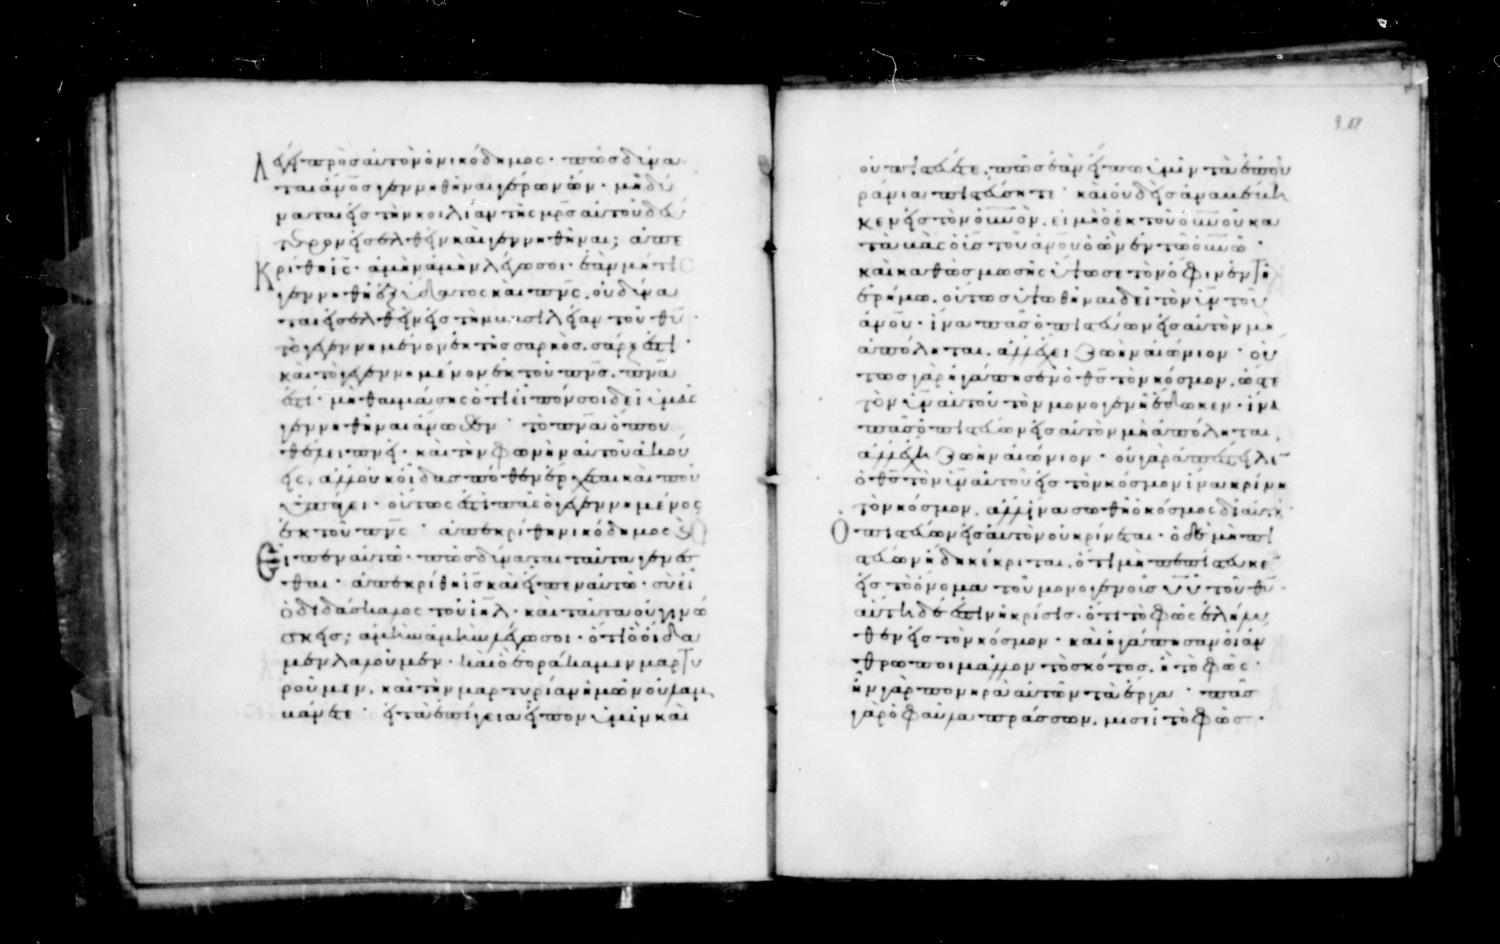 Λέγει πρὸς αὐτὸν ὁ νικόδημος · πῶς δύνα
ται ἄνος γεννηθῆναι γέρων ὤν · μὴ δύ
ναται εἰς τὴν κοιλίαν τῆς μρς αὐτοῦ δεύ
τερον εἰσελθεῖν καὶ γεννηθῆναι; ἀπε
Κρίθη ις · ἀμὴν ἀμὴν λέγω σοι · ἐὰν μή τι
γεννηθῆ ἐξ ὕδατος καὶ πνς, οὐ δύνα
ται εἰσελθεῖν εἰς τὴν βασιλείαν τοῦ θυ ·
τὸ γεγεννημένον ἐκ τῆς σαρκος, σάρξ ἐστι ·
καὶ τὸ γεγεννημένον ἐκ τοῦ πνς, πνα
ἐστι · μὴ θαυμάσης ὅτι εἶπόν σοι δεῖ ὑμᾶς
γεννηθῆναι ἄνωθεν · τὸ πνα ὅπου
θέλει πνεῖ · καὶ τὴν φωνὴν αὐτοῦ ἀκού
εις, ἀλλ' οὐκ οἶδας πόθεν ἔρχεται καὶ ποῦ
ὑπάγει · οὕτως ἐστὶ πᾶς ὁ γεγεννημένος
ἐκ τοῦ πνς · ἀπεκρίθη νικόδημος καὶ
Εἶπεν αὐτῶ · πῶς δύναται ταῦτα γενέ
σθαι · ἀπεκρίθη ις καὶ εἶπεν αὐτῶ · σὺ εἶ
ὁ διδάσκαλος τοῦ ιηλ · καὶ ταῦτα οὐ γινώ
σκεις; ἀμὴν ἀμὴν λέγω σοι · ὅτι ὃ οἴδα
μεν λαλοῦμεν · καὶ ὃ ἑοράκαμεν μαρτυ
ροῦμεν, καὶ τὴν μαρτυρίαν ἡμῶν οὐ λαμ
βάνετε · εἰ τὰ ἐπίγεια εἶπον ὑμῖν καὶ
207
οὐ πιστεύετε, πῶς ἐὰν εἴπω ὑμῖν τὰ ἐπου
ράνια πιστεύσητε · καὶ οὐδεὶς ἀναβέβη
κεν εἰς τὸν οὐνον, εἰ μὴ ὁ ἐκ τοῦ οὐνου κα
ταβὰς ὁ υς τοῦ ἀνου ὁ ὢν ἐν τῶ οὐνω ·
καὶ καθὼς μωσῆς ὕψωσε τὸν ὄφιν ἐν τῆ
ἐρήμω, οὕτως ὑψωθῆναι δεῖ τὸν υν τοῦ
ἀνου · ἵνα πᾶς ὁ πιστεύων εἰς αὐτὸν μὴ
ἀπόληται, ἀλλ' ἔχει ζωὴν αἰώνιον · οὕ
τως γὰρ ἠγάπησεν ὁ θς τὸν κόσμον, ὥστε
τὸν υν αὐτοῦ τὸν μονογενῆ ἔδωκεν · ἵνα
πᾶς ὁ πιστεύων εἰς αὐτὸν μὴ ἀπόληται,
ἀλλ' ἔχη ζωὴν αἰώνιον · οὐ γὰρ ἀπέστειλεν
ὁ θς τὸν υν αὐτοῦ εἰς τὸν κόσμον ἵνα κρίνη
τὸν κόσμον, ἀλλ' ἵνα σωθῆ ὁ κόσμος δι' αὐτοῦ ·
Ὁ πιστεύων εἰς αὐτὸν οὐ κρίνεται · ὁ δὲ μὴ πι
στεύων ἤδη κέκριται, ὅτι μὴ πεπίστευκεν
εἰς τὸ ὄνομα τοῦ μονογενοῦς υυ τοῦ θυ ·
αὕτη δέ ἐστιν ἡ κρίσις · ὅτι τὸ φῶς ἐλήλυ
θεν εἰς τὸν κόσμον · καὶ ἠγάπησαν οἱ ἄν
θρωποι μᾶλλον τὸ σκότος, ἢ τὸ φῶς ·
ἦν γὰρ πονηρὰ αὐτῶν τὰ ἔργα · πᾶς
γὰρ ὁ φαῦλα πράσσων, μισεῖ τὸ φῶς ·